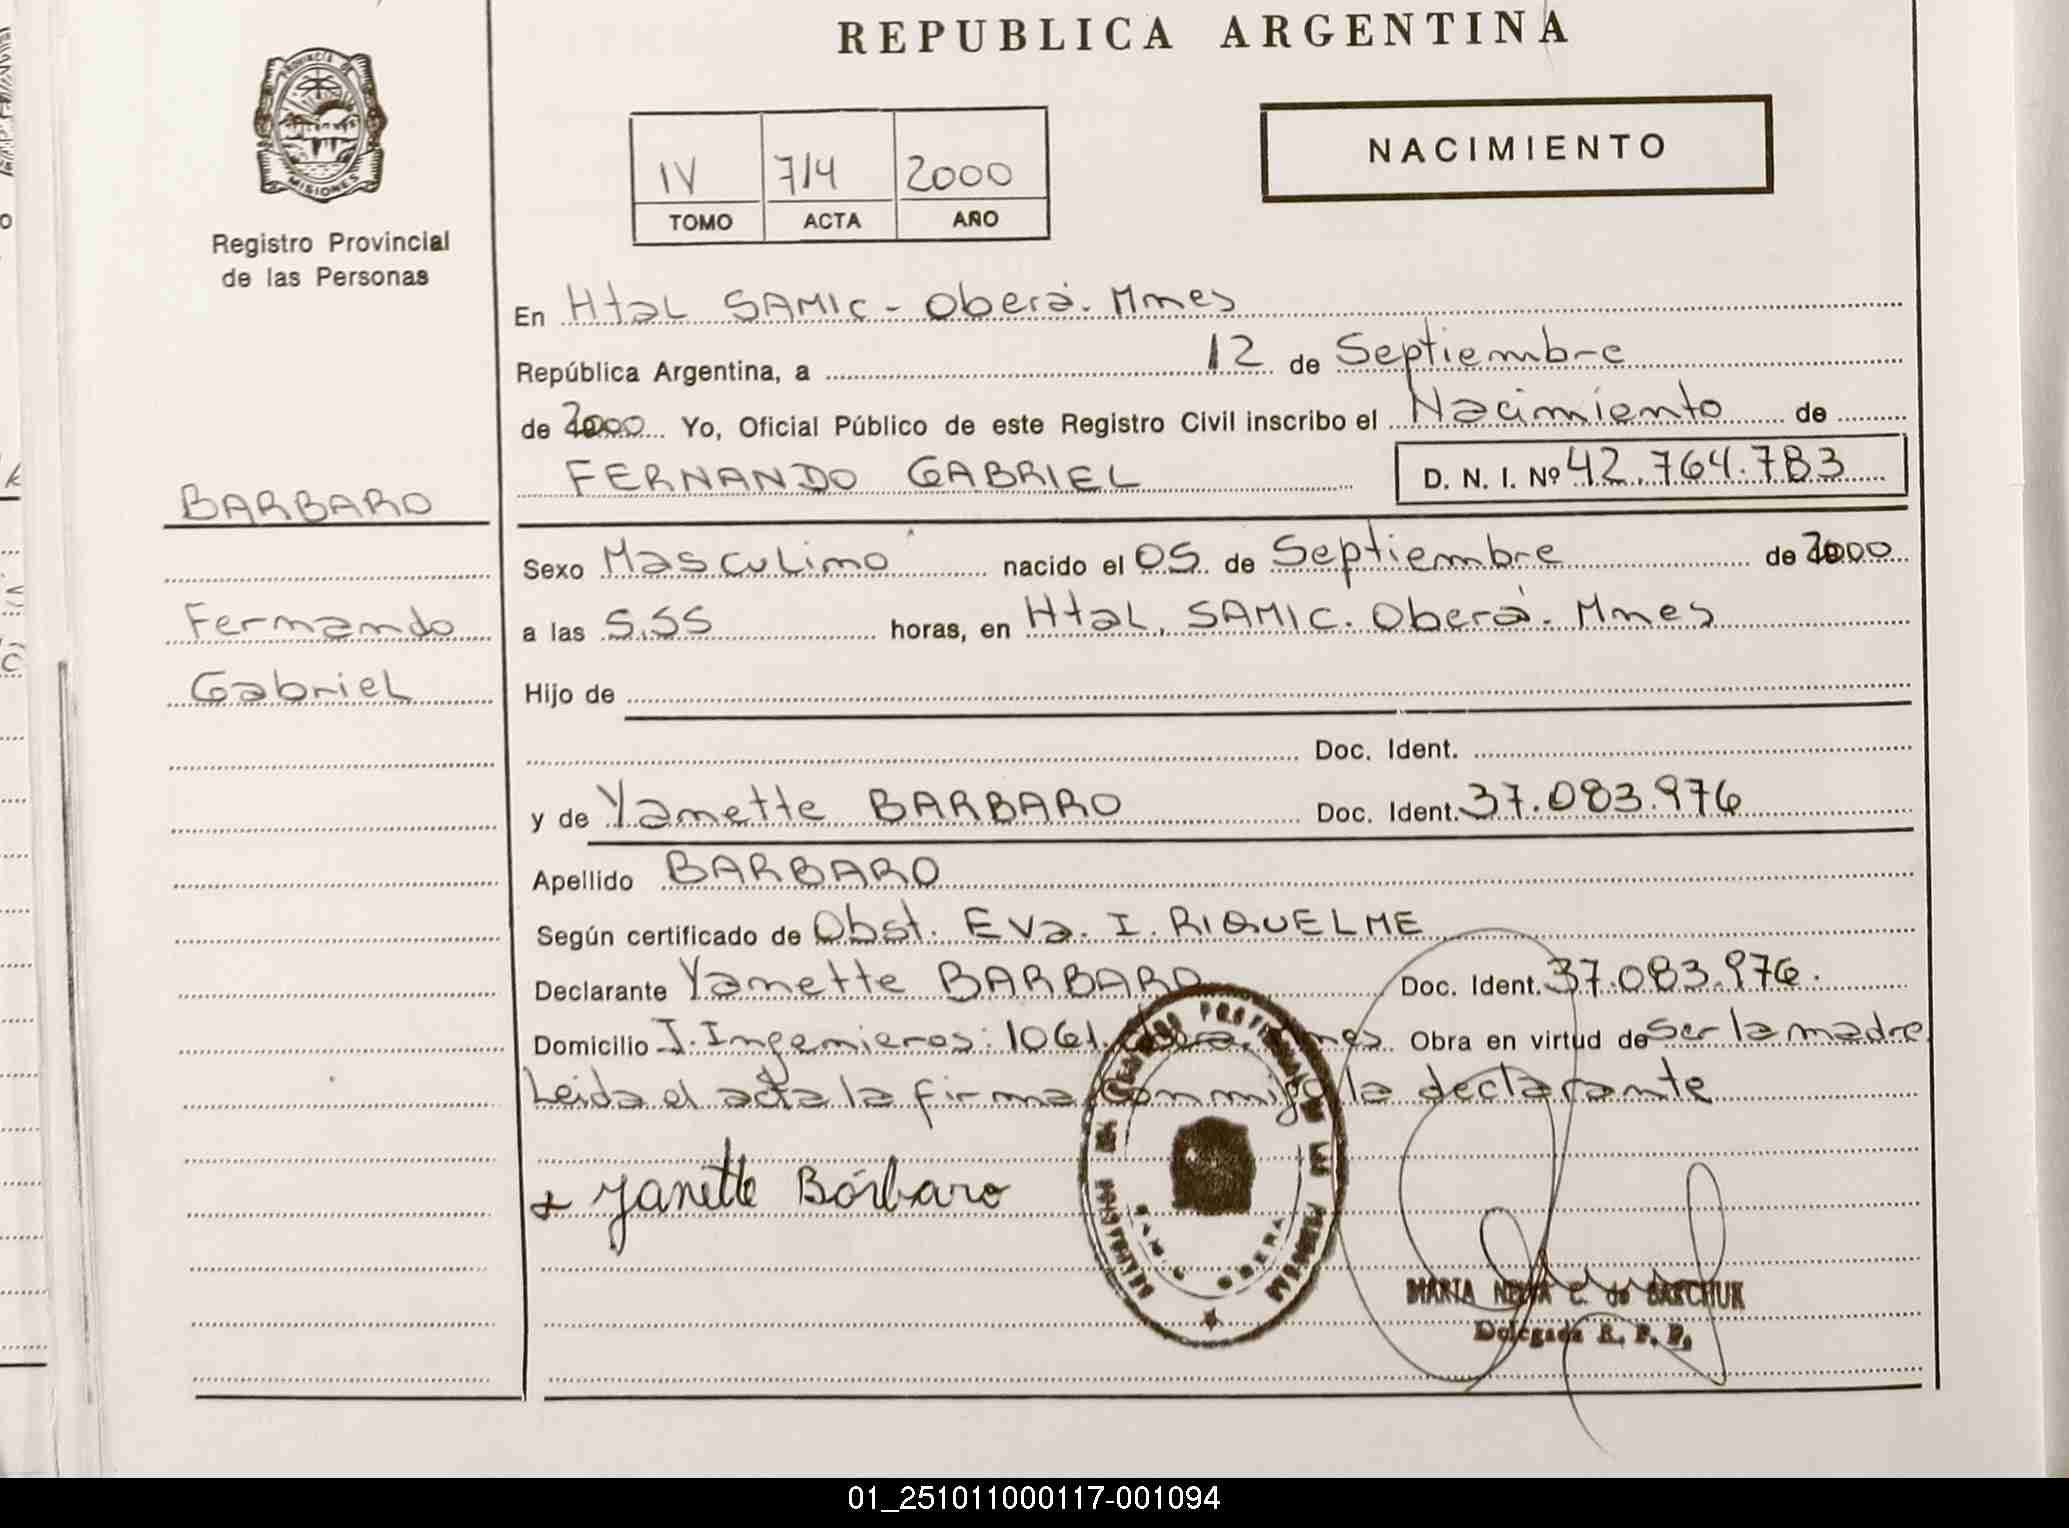 REPUBLICA ARGENTINA
PROVINCIA DE
MISIONES
Registro Provincial
de las Personas
IV 714 2000
TOMO ACTA AÑO
NACIMIENTO
En Htal SAMIC - Oberá. Mnes
República Argentina, a 12 de Septiembre
de 2000 Yo, Oficial Público de este Registro Civil inscribo el Nacimiento de
FERNANDO GABRIEL D. N. I. Nº 42.764.783
BARBARO
Sexo Masculino nacido el 05 de Septiembre de 2000
Fernando
a las 5.55 horas, en Htal. SAMIC. Oberá. Mnes
Gabriel
Hijo de
Doc. Ident.
y de Yanette BARBARO Doc. Ident. 37.083.976
Apellido BARBARO
Según certificado de Obst. Eva. I. RIQUELME
Declarante Yanette BARBARO Doc. Ident. 37.083.976.
Domicilio J. Ingenieros: 1061. Mnes. Obra en virtud de Ser la madre
Leida el acta la firma conmigo la declarante
Yanette Bárbaro
OBERA
MARIA C. de
Delegada R. P. P.
01_251011000117-001094